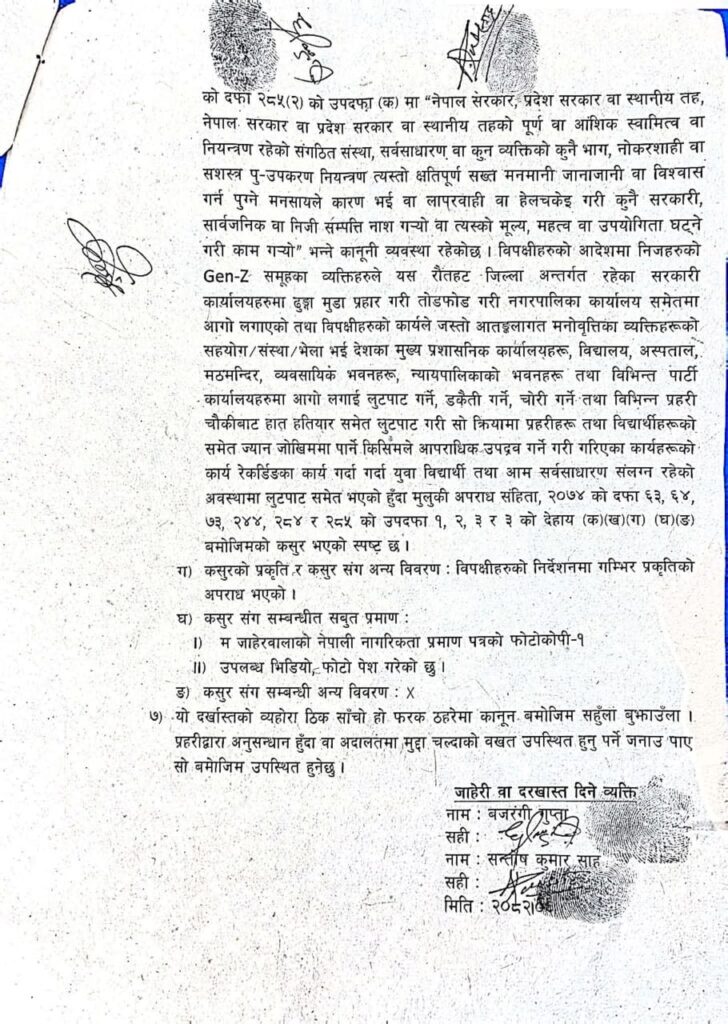 को दफा २८५(२) को उपदफा (क) मा "नेपाल सरकार, प्रदेश सरकार वा स्थानीय तह,
नेपाल सरकार वा प्रदेश सरकार वा स्थानीय तहको पूर्ण वा आंशिक स्वामित्व वा
नियन्त्रण रहेको संगठित संस्था, सर्वसाधारण वा कुन व्यक्तिको कुनै भाग, नोकरशाही वा
सशस्त्र पु-उपकरण नियन्त्रण त्यस्तो क्षतिपूर्ण सख्त मनमानी जानाजानी वा विश्वास
गर्न पुग्ने मनसायले कारण भई वा लापरवाही वा हेलचकेइ गरी कुनै सरकारी,
सार्वजनिक वा निजी सम्पत्ति नाश गर्‍यो वा त्यस्को मूल्य, महत्व वा उपयोगिता घट्ने
गरी काम गर्‍यो" भन्ने कानूनी व्यवस्था रहेकोछ । विपक्षीहरुको आदेशमा निजहरुको
Gen-Z समूहका व्यक्तिहरुले यस रौतहट जिल्ला अन्तर्गत रहेका सरकारी
कार्यालयहरुमा ढुङ्गा मुडा प्रहार गरी तोडफोड गरी नगरपालिका कार्यालय समेतमा
आगो लगाएको तथा विपक्षीहरुको कार्यले जस्तो आतङ्कलागत मनोवृत्तिका व्यक्तिहरूको
सहयोग/संस्था/भेला भई देशका मुख्य प्रशासनिक कार्यालयहरू, विद्यालय, अस्पताल,
मठमन्दिर, व्यवसायिक भवनहरू, न्यायपालिकाको भवनहरू तथा विभिन्त पार्टी
कार्यालयहरुमा आगो लगाई लुटपाट गर्ने, डकैती गर्ने, चोरी गर्ने तथा विभिन्न प्रहरी
चौकीबाट हात हतियार समेत लुटपाट गरी सो क्रियामा प्रहरीहरू तथा विद्यार्थीहरूको
समेत ज्यान जोखिममा पार्ने किसिमले आपराधिक उपद्रव गर्ने गरी गरिएका कार्यहरूको
कार्य रेकर्डिङका कार्य गर्दा गर्दा युवा विद्यार्थी तथा आम सर्वसाधारण संलग्न रहेको
अवस्थामा लुटपाट समेत भएको हुँदा मुलुकी अपराध संहिता, २०७४ को दफा ६३, ६४,
७३, २४४, २८४ र २८५ को उपदफा १, २, ३ र ३ को देहाय (क)(ख)(ग) (घ)(ङ)
बमोजिमको कसुर भएको स्पष्ट छ ।
ग) कसुरको प्रकृति र कसुर संग अन्य विवरण : विपक्षीहरुको निर्देशनमा गम्भिर प्रकृतिको
अपराध भएको ।
घ) कसुर संग सम्बन्धीत सबुत प्रमाण :
I) म जाहेरवालाको नेपाली नागरिकता प्रमाण पत्रको फोटोकोपी-१
II) उपलब्ध भिडियो, फोटो पेश गरेको छु ।
ङ) कसुर संग सम्बन्धी अन्य विवरण : X
७) यो दर्खास्तको व्यहोरा ठिक साँचो हो फरक ठहरेमा कानून बमोजिम सहुँला बुझाउँला ।
प्रहरीद्वारा अनुसन्धान हुँदा वा अदालतमा मुद्दा चल्दाको वखत उपस्थित हुनु पर्ने जनाउ पाए
सो बमोजिम उपस्थित हुनेछु ।
जाहेरी वा दरखास्त दिने व्यक्ति
नाम : बजरंगी गुप्ता
सही :
नाम : सन्तोष कुमार साह
सही :
मिति : २०८२